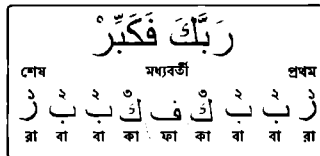 رَبَّكَ فَكَبِّرْ
শেষ মধ্যবর্তী প্রথম
رَ بَ بَ كَ فَ كَ بَ بَ رَ
রা বা বা কা ফা কা বা বা রা